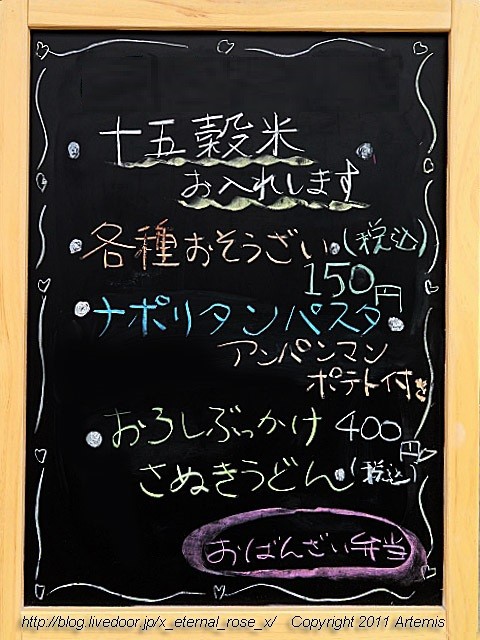 十五穀米
お入れします
各種おそうざい(税込)
150円
ナポリタンパスタ
アンパンマン
ポテト付き
おろしぶっかけ 400円
さぬきうどん(税込)
おばんざい弁当
http://blog.livedoor.jp/x_eternal_rose_x/ Copyright 2011 Artemis